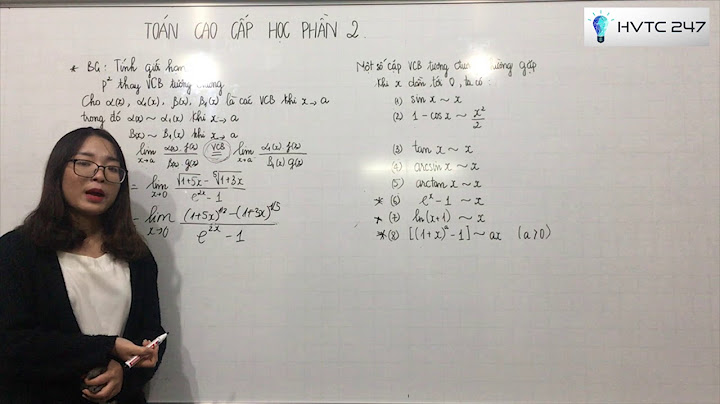 TOÁN CAO CẤP HỌC PHẦN 2.
HVTC 247
* BG: Tính giới hạn
P² thay VCB tương đương
Cho α(x), α₁(x), β(x), β₁(x) là các VCB khi x→a
trong đó α(x) ~ α₁(x) khi x→a
β(x) ~ β₁(x) khi x→a
lim x→a α(x).f(x)/β(x).g(x) (VCB) = lim x→a α₁(x).f(x)/β₁(x).g(x)
= lim x→0 (√(1+5x) - ⁵√(1+3x))/(e^(2x) - 1)
lim x→0 ((1+5x)^(1/2) - (1+3x)^(1/5))/(e^(2x) - 1)
Một số cặp VCB tương đương thường gặp
Khi x dần tới 0, ta có:
(1) sin x ~ x
(2) 1 - cos x ~ x²/2
(3) tan x ~ x
(4) arcsin x ~ x
(5) arctan x ~ x
* (6) eˣ - 1 ~ x
* (7) ln(x+1) ~ x
* (8) [(1+x)ᵃ - 1] ~ ax (a>0)